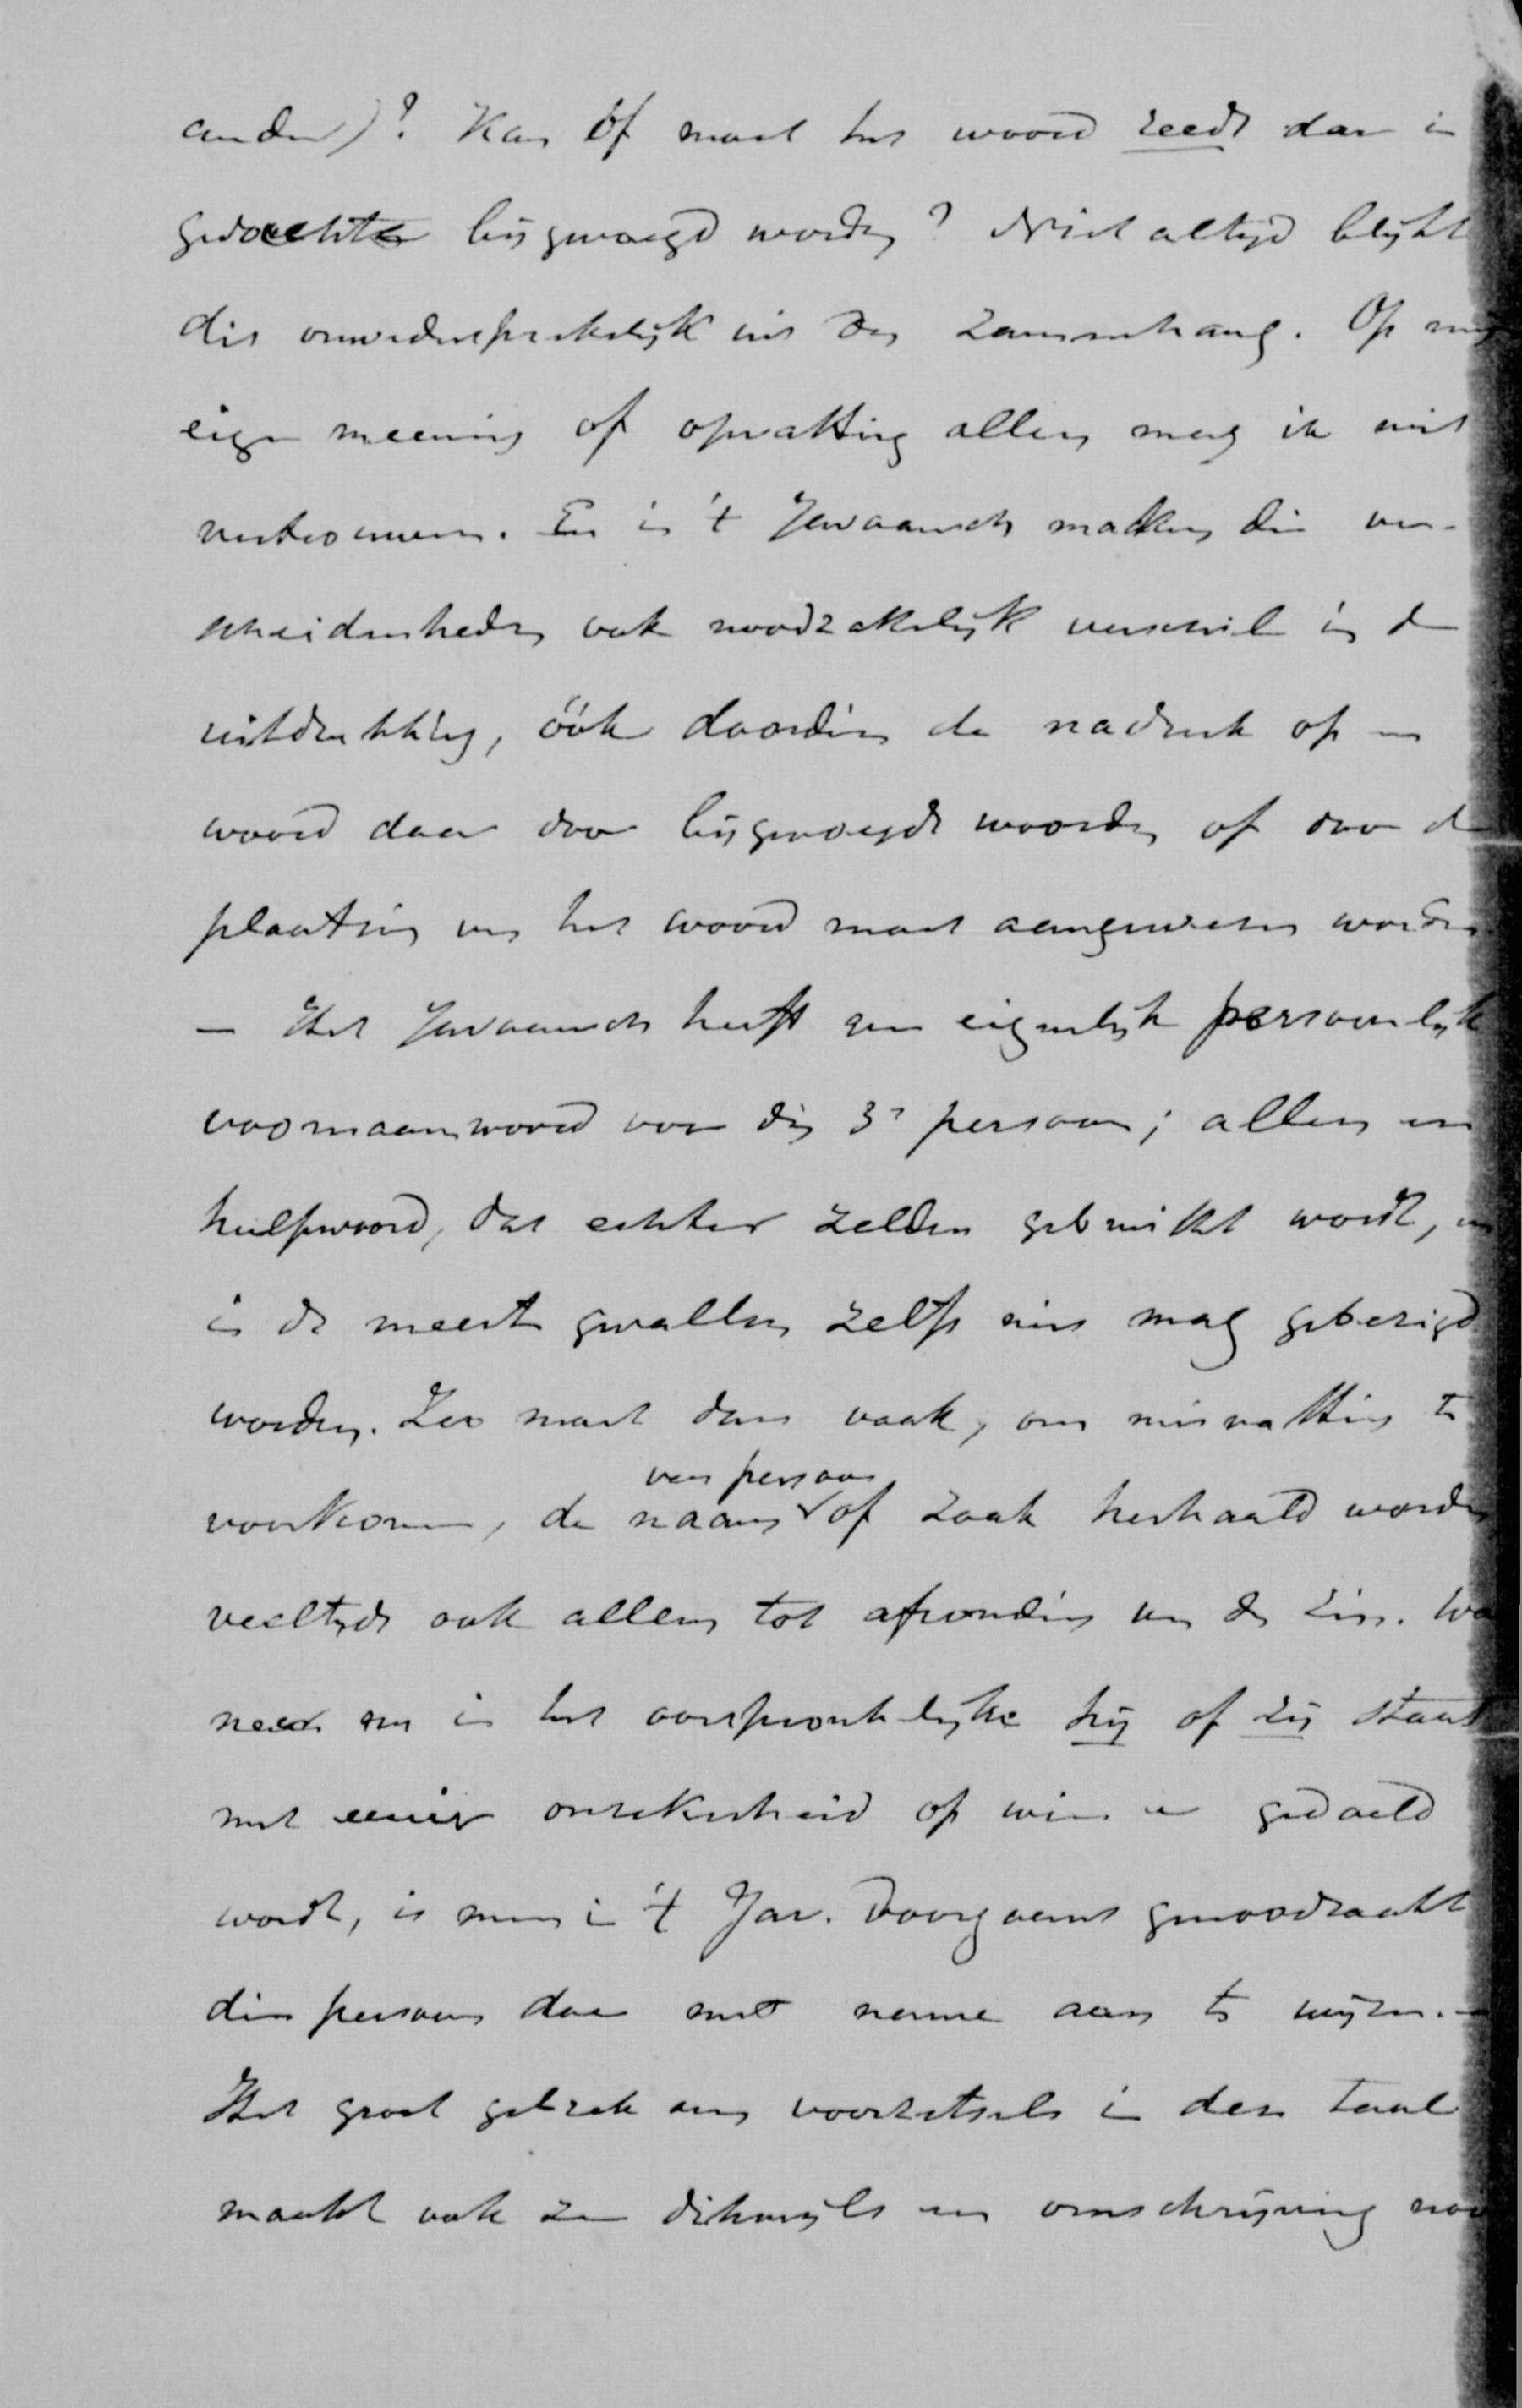 ander)? Kan óf moet het woord reeds dan in
gedachte bijgevoegd worden? Niet altijd blijkt
dit onwedersprekelijk uit den zamenhang. Op mijn
eigen meening of opvatting alleen mag ik niet
vertrouwen. En in 't Javaansch maken die ver-
scheidenheden ook noodzakelijk verschil in de
uitdrukking, óók doordien de nadruk op een
woord daar door bijgevoegde woorden of door de
plaatsing van het woord moet aangewezen worden
— Het Javaansch heeft geen eigenlijk persoonlijk
voornaamwoord voor den 3n persoon; alleen een
hulpwoord, dat echter zelden gebruikt wordt, en
in de meeste gevallen zelfs niet mag gebezigd
worden. Zeer moet dan vaak, om misvatting te
voorkomen, de naam van persoon of zaak herhaald worden
veeltijds ook alleen tot afronding van den zin. Wan
neer nu in het oorspronkelijke hij of zij staat
met eenige onzekerheid op wien er gedoeld
wordt, is men in 't Jav. doorgaans genoodzaakt
dien persoon daar met name aan te wijzen. —
Het groot gebrek aan voorzetsels in deze taal
maakt ook zeer dikwijls een omschrijving noo